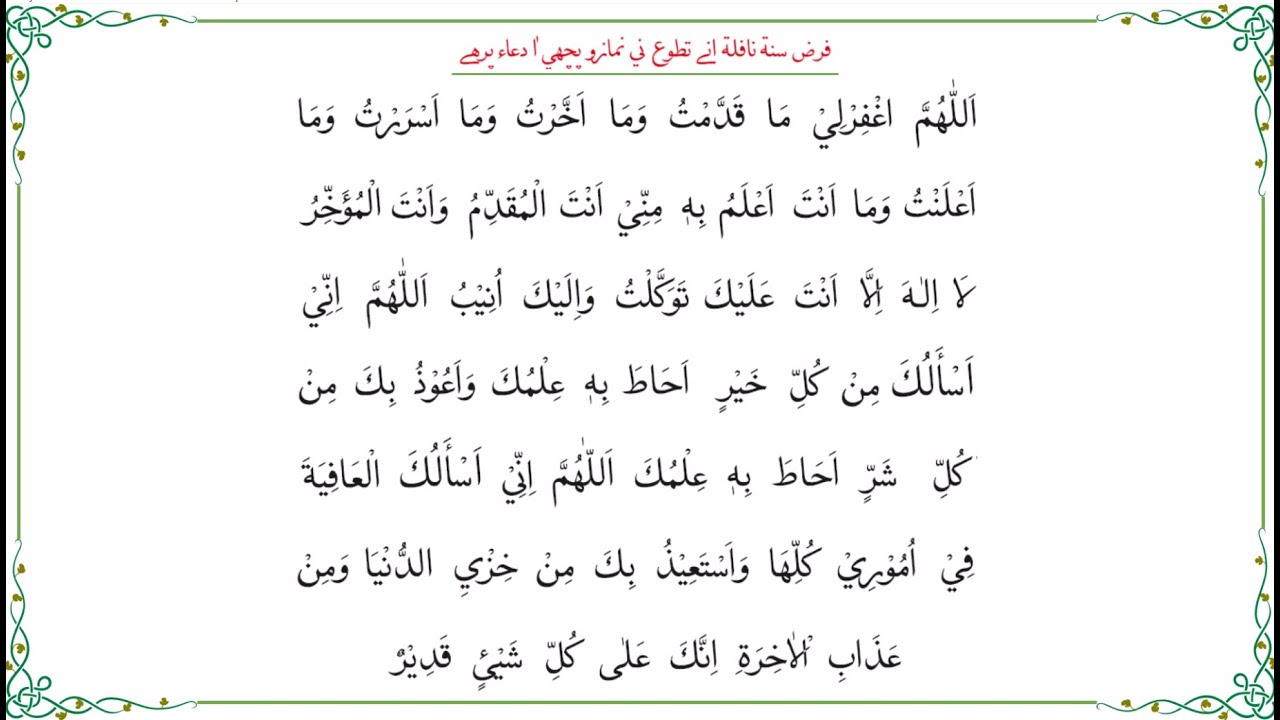 فرض سنة نافلة انے تطوع ني نمازو پچھي اٰ دعاء پرهے
اَللّٰهُمَّ اغْفِرْلِيْ مَا قَدَّمْتُ وَمَا اَخَّرْتُ وَمَا اَسْرَرْتُ وَمَا
اَعْلَنْتُ وَمَا اَنْتَ اَعْلَمُ بِهٖ مِنِّيْ اَنْتَ الْمُقَدِّمُ وَاَنْتَ الْمُؤَخِّرُ
لَا اِلٰهَ اِلَّا اَنْتَ عَلَيْكَ تَوَكَّلْتُ وَاِلَيْكَ اُنِيْبُ اَللّٰهُمَّ اِنِّيْ
اَسْأَلُكَ مِنْ كُلِّ خَيْرٍ اَحَاطَ بِهٖ عِلْمُكَ وَاَعُوْذُ بِكَ مِنْ
كُلِّ شَرٍّ اَحَاطَ بِهٖ عِلْمُكَ اَللّٰهُمَّ اِنِّيْ اَسْأَلُكَ الْعَافِيَةَ
فِيْ اُمُوْرِيْ كُلِّهَا وَاَسْتَعِيْذُ بِكَ مِنْ خِزْيِ الدُّنْيَا وَمِنْ
عَذَابِ الْاٰخِرَةِ اِنَّكَ عَلٰى كُلِّ شَيْئٍ قَدِيْرٌ